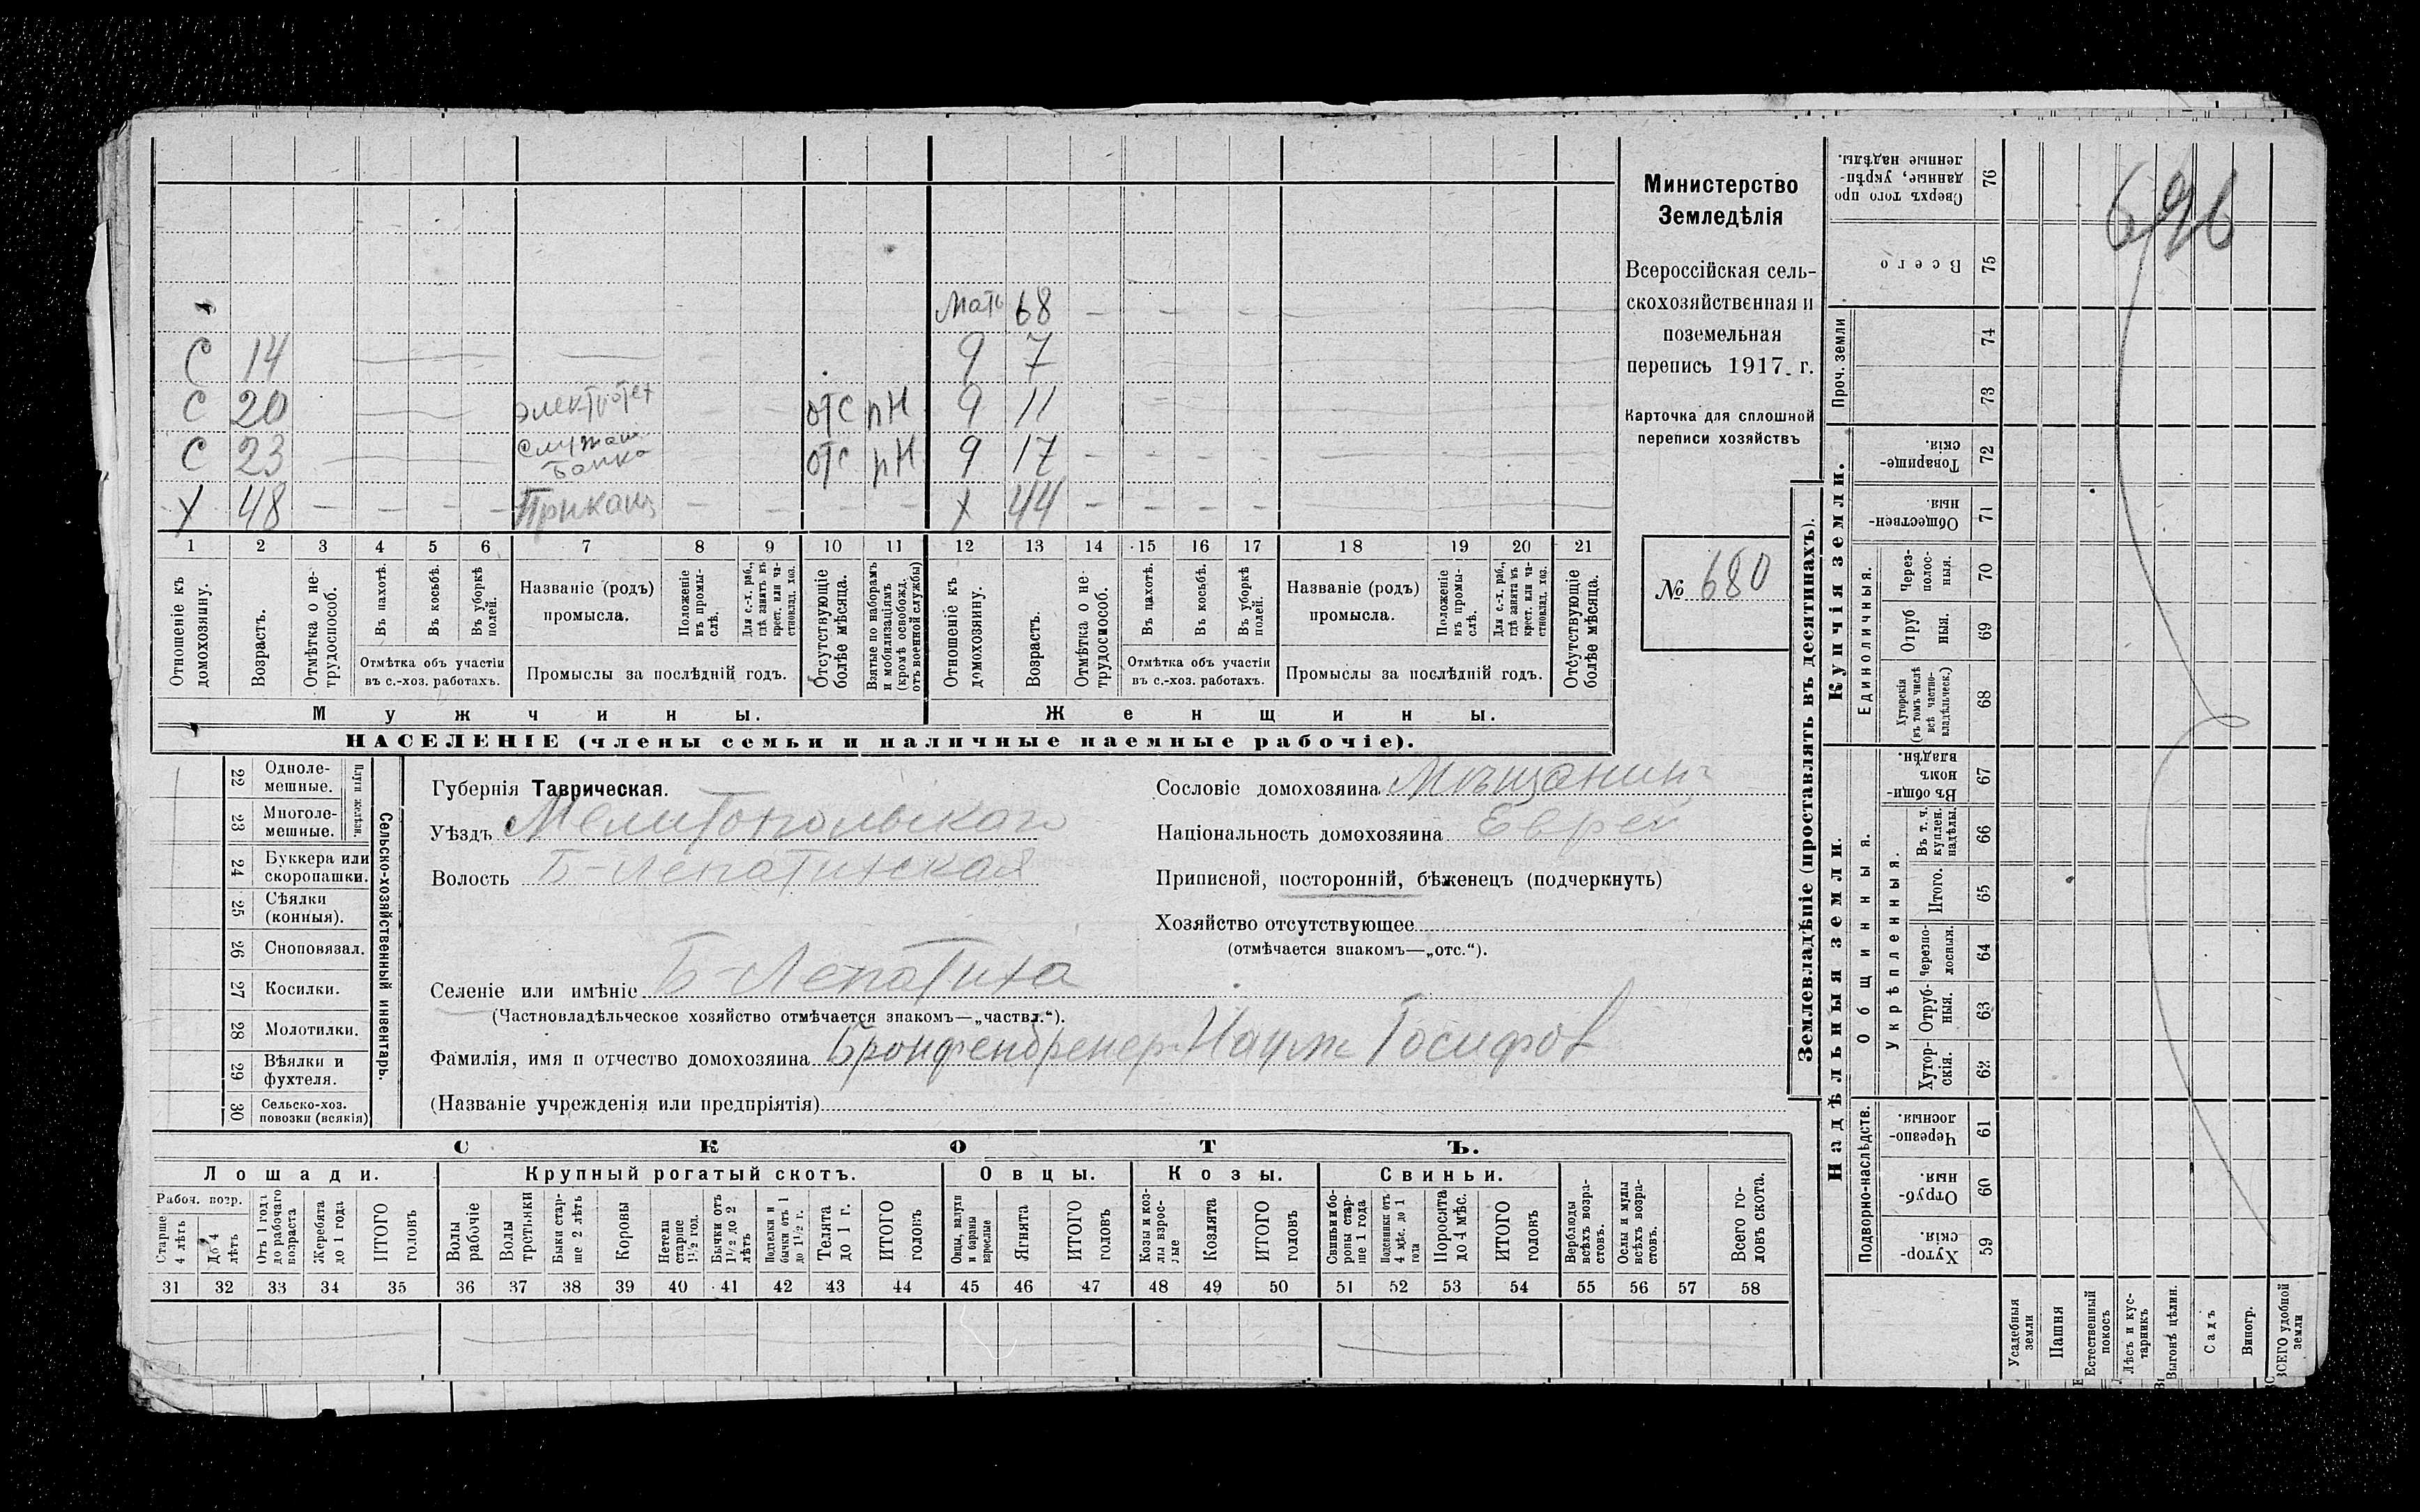 Министерство
Земледѣлія
Всероссійская сель-
скохозяйственная и
поземельная
перепись 1917 г.
Карточка для сплошной
переписи хозяйствъ
№ 680
696
Мать 68
С 14 9 7
С 20 электротех отс рН 9 11
С 23 Служащ отс рН 9 17
Банка
Х 48 Приказч Х 44
1 2 3 4 5 6 7 8 9 10 11 12 13 14 15 16 17 18 19 20 21
Отношеніе къ домохозяину.
Возрастъ.
Отмѣтка о не-трудоспособ.
Въ пахотѣ.
Въ косьбѣ.
Въ уборкѣ полей.
Отмѣтка объ участіи
въ с.-хоз. работахъ.
Названіе (родъ)
промысла.
Положеніе въ промы-слѣ.
Для с.-х. раб., гдѣ занятъ въ крест. или ча-стновлад. хоз.
Промыслы за послѣдній годъ.
Отсутствующіе болѣе мѣсяца.
Взятые по наборамъ и мобилизаціямъ (кромѣ освобожд. отъ военной службы)
Отношеніе къ домохозяину.
Возрастъ.
Отмѣтка о не-трудоспособ.
Въ пахотѣ.
Въ косьбѣ.
Въ уборкѣ полей.
Отмѣтка объ участіи
въ с.-хоз. работахъ.
Названіе (родъ)
промысла.
Положеніе въ промы-слѣ.
Для с.-х. раб., гдѣ занята въ крест. или ча-стновлад. хоз.
Промыслы за послѣдній годъ.
Отсутствующіе болѣе мѣсяца.
Мужчины.
Женщины.
НАСЕЛЕНІЕ (члены семьи и наличные наемные рабочіе).
22 Одноле-мешные.
23 Многоле-мешные.
Плуги желѣзн.
24 Буккера или скоропашки.
25 Сѣялки (конныя).
26 Сноповязал.
27 Косилки.
28 Молотилки.
29 Вѣялки и фухтеля.
30 Сельско-хоз. повозки (всякія)
Сельско-хозяйственный инвентарь.
Губернія Таврическая.
Уѣздъ Мелитопольскаго
Волость Б-Лепатихская
Селеніе или имѣніе Б-Лепатиха
(Частновладѣльческое хозяйство отмѣчается знакомъ—„частвл.“).
Фамилія, имя и отчество домохозяина Бронфенбренер Наум Іосифов
(Названіе учрежденія или предпріятія)
Сословіе домохозяина Мѣщанинъ
Національность домохозяина Еврей
Приписной, посторонній, бѣженецъ (подчеркнуть)
Хозяйство отсутствующее
(отмѣчается знакомъ—„отс.“).
СКОТЪ.
Лошади. Крупный рогатый скотъ. Овцы. Козы. Свиньи.
Рабоч. возр.
Старше 4 лѣтъ
До 4 лѣтъ
Отъ 1 года до рабочаго возраста
Жеребята до 1 года
ИТОГО головъ
Волы рабочіе
Волы третьяки
Быки стар-ше 2 лѣтъ
Коровы
Нетели старше 1½ год.
Бычки отъ 1½ до 2 лѣтъ
Подтелки и бычки отъ 1 до 1½ г.
Телята до 1 г.
ИТОГО головъ
Овцы, валухи и бараны взрослые
Ягнята
ИТОГО головъ
Козы и коз-лы взрос-лые
Козлята
ИТОГО головъ
Свиньи и бо-ровы стар-ше 1 года
Подсвинки отъ 4 мѣс. до 1 года
Поросята до 4 мѣс.
ИТОГО головъ
Верблюды всѣхъ возра-стовъ.
Ослы и мулы всѣхъ возра-стовъ.
Всего го-ловъ скота.
31 32 33 34 35 36 37 38 39 40 41 42 43 44 45 46 47 48 49 50 51 52 53 54 55 56 57 58
Землевладѣніе (проставлять въ десятинахъ).
Надѣльныя земли.
Купчія земли.
Проч. земли
Подворно-наслѣдств.
Общинныя.
Укрѣпленныя.
Единоличныя.
Сверхъ того про данные, укрѣп-ленные надѣлы. 76
Всего 75
74
73
Товарище-скія. 72
Обществен-ныя. 71
Через-полос-ныя. 70
Отруб ныя. 69
Хуторскія (въ томъ числѣ всѣ частно-владѣльческ.) 68
Въ общин-номъ владѣн. 67
Въ т. ч. куплен. надѣлы. 66
Итого. 65
Черезпо-лосныя. 64
Отруб-ныя. 63
Хутор-скія. 62
Черезпо-лосныя. 61
Отруб-ныя. 60
Хутор-скія. 59
Усадебныя земли
Пашня
Естественный покосъ
Лѣсъ и кус-тарникъ
Выгонъ цѣлин.
Садъ
Виногр.
ВСЕГО удобной земли